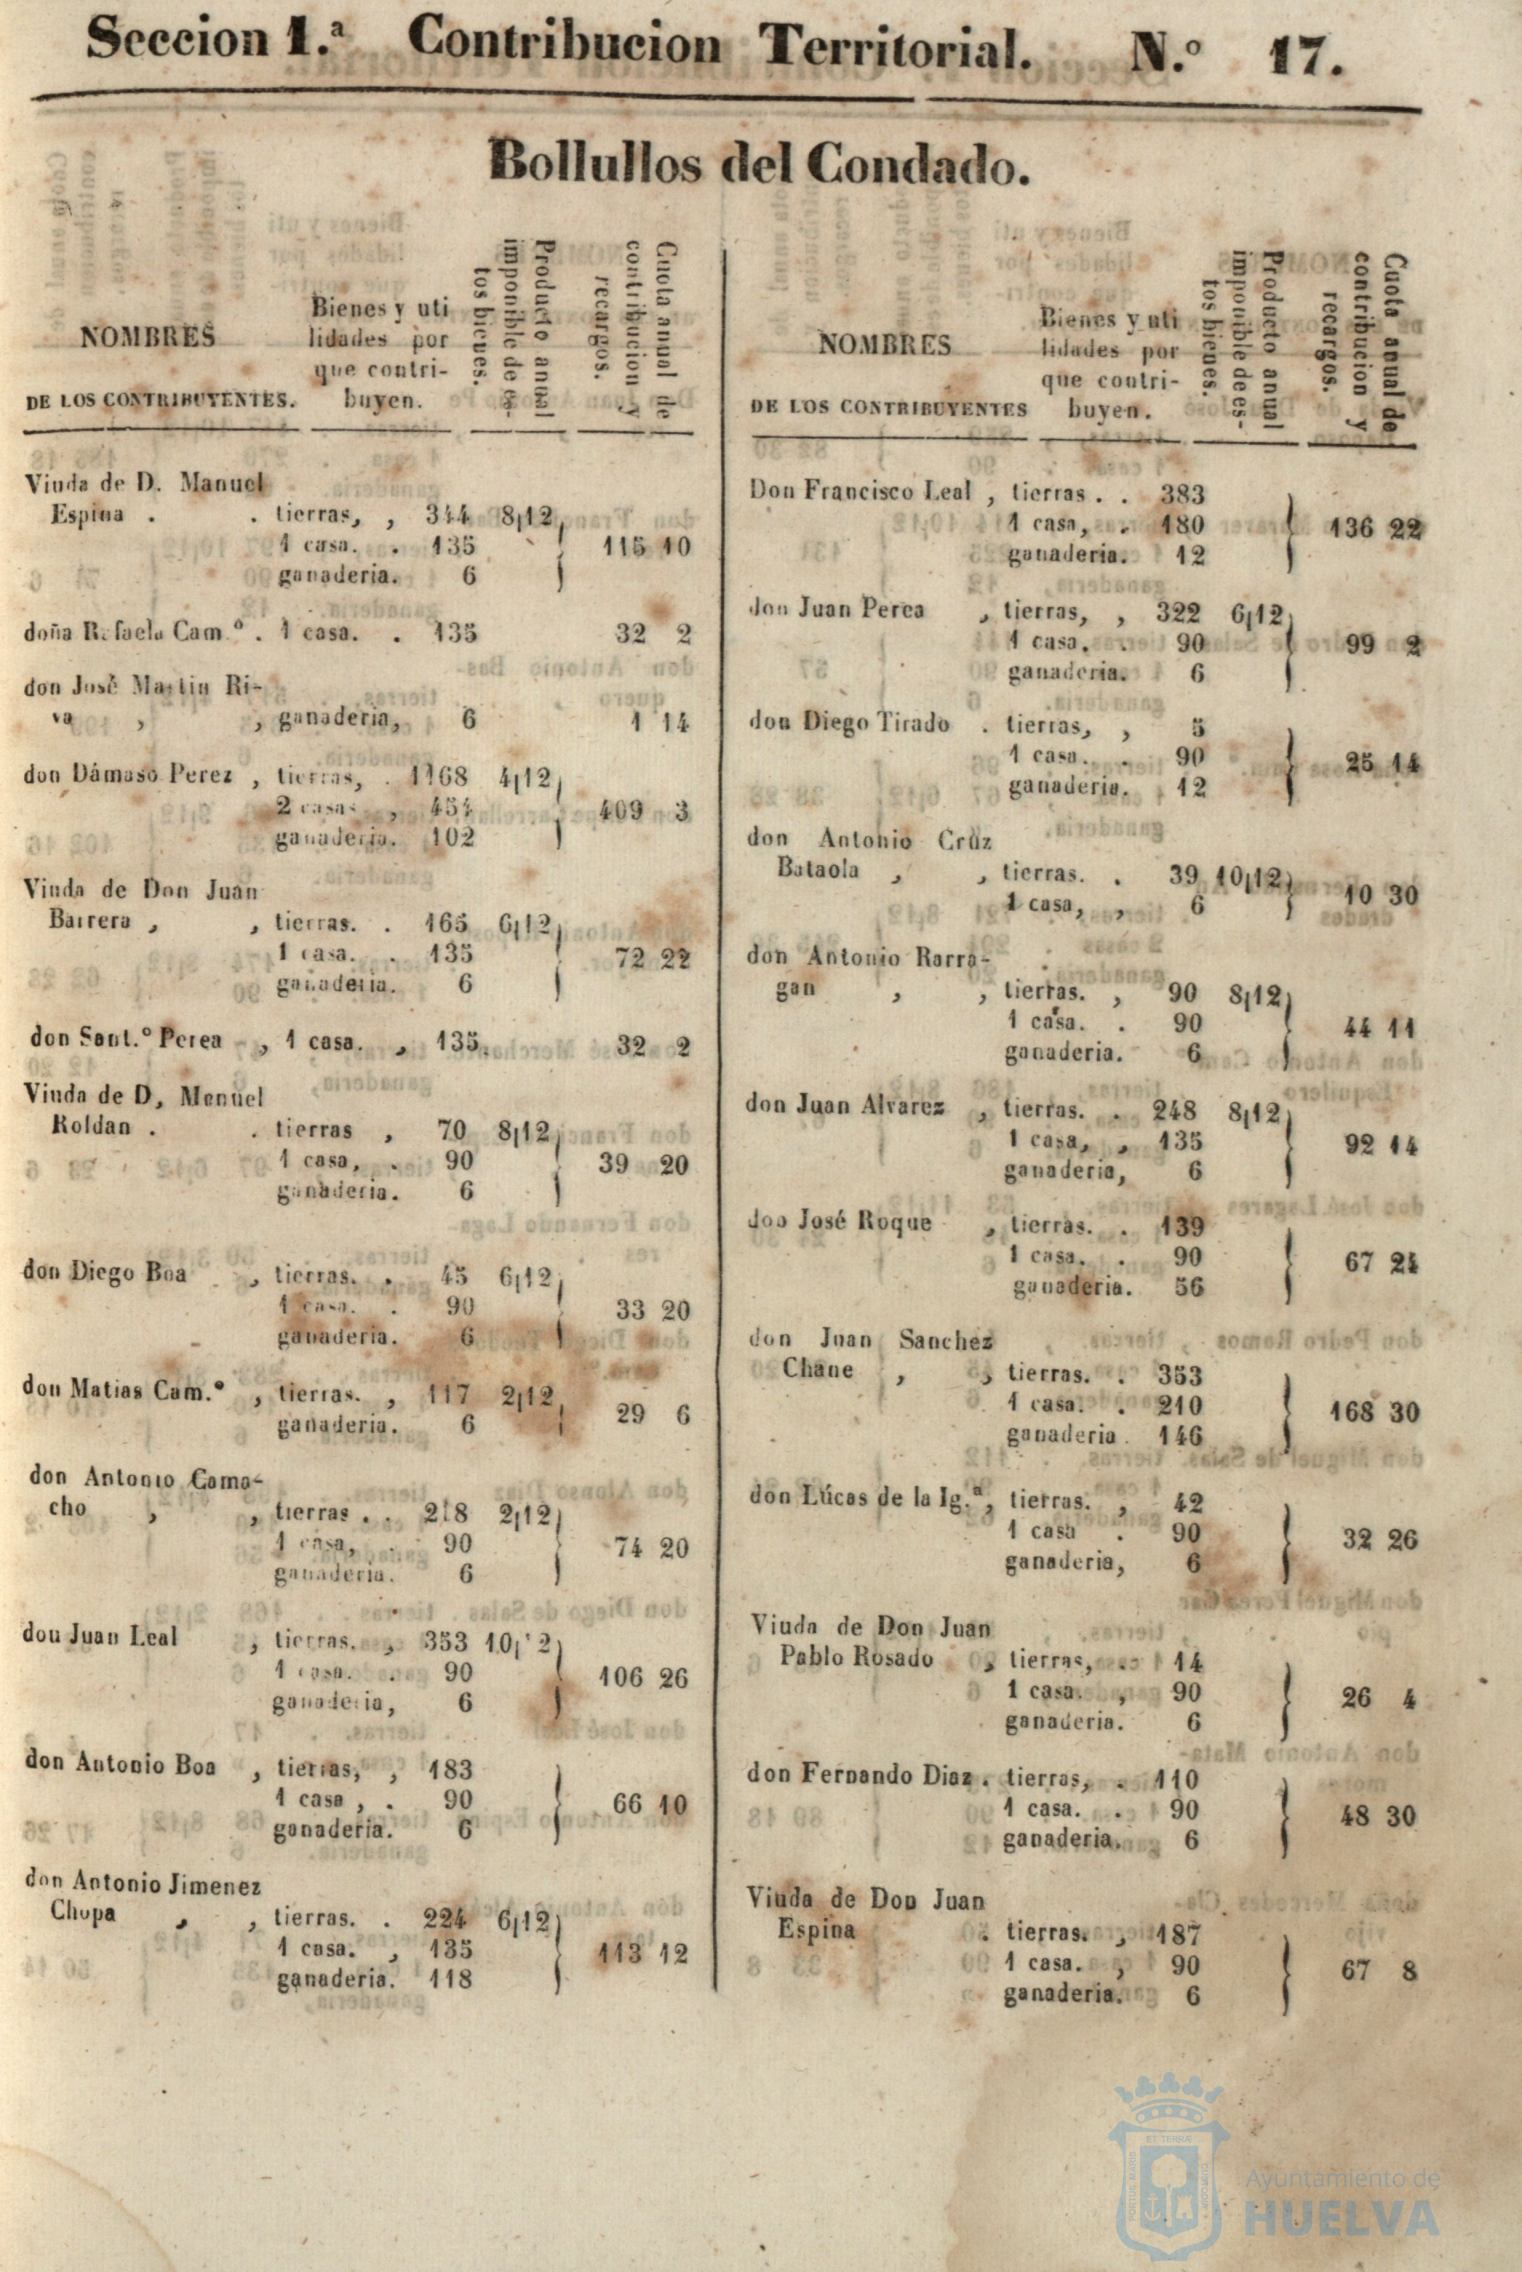 Seccion 1.ª Contribucion Territorial. N.º 17.
Bollullos del Condado.
NOMBRES
DE LOS CONTRIBUYENTES.
Bienes y uti
lidades por
que contri-
buyen.
Producto anual
imponible de es-
tos bienes.
Cuota anual de
contribucion y
recargos.
Viuda de D. Manuel
Espina . . tierras, , 344 8|12
1 casa. . 135 115 10
ganaderia. 6
doña Rafaela Cam.º . 1 casa. . 135 32 2
don José Martin Ri-
va , , ganaderia, 6 1 14
don Dámaso Perez , tierras, . 1168 4|12
2 casas , 454 409 3
ganaderia. 102
Viuda de Don Juan
Barrera , , tierras. . 165 6|12
1 casa. . 135 72 22
ganaderia. 6
don Sant.º Perea , 1 casa. , 135. 32 2
Viuda de D, Manuel
Roldan . . tierras , 70 8|12
1 casa, . 90 39 20
ganaderia. 6
don Diego Boa , tierras. . 45 6|12
1 casa. . 90 33 20
ganaderia. 6
don Matias Cam.º , tierras. , 117 2|12
ganaderia. 6 29 6
don Antonio Cama-
cho , , tierras . . 218 2|12
1 casa, . 90 74 20
ganaderia. 6
dou Juan Leal , tierras. , 353 10| 2
1 casa. . 90 106 26
ganaderia, 6
don Antonio Boa , tierras, , 183
1 casa , . 90 66 10
ganaderia. 6
don Antonio Jimenez
Chupa , , tierras. . 224 6|12
1 casa. , 135 113 12
ganaderia. 118
NOMBRES
DE LOS CONTRIBUYENTES
Bienes y uti
lidades por
que contri-
buyen.
Producto anual
imponible de es-
tos bienes.
Cuota anual de
contribucion y
recargos.
Don Francisco Leal , tierras . . 383
1 casa, . 180 136 22
ganaderia. 12
don Juan Perea , tierras, , 322 6|12
1 casa. . 90 99 2
ganaderia. 6
don Diego Tirado . tierras, , 5
1 casa. . 90 25 14
ganaderia. 12
don Antonio Crúz
Bataola , , tierras. . 39 10|12
1 casa, , 6 10 30
don Antonio Rarra-
gan , , tierras. , 90 8|12
1 casa. . 90 44 11
ganaderia. 6
don Juan Alvarez , tierras. . 248 8|12
1 casa, , 135 92 14
ganaderia, 6
don José Roque , tierras. . 139
1 casa. . 90 67 24
ganaderia. 56
don Juan Sanchez
Chane , , tierras. . 353
1 casa. . 210 168 30
ganaderia . 146
don Lúcas de la Ig.ª, tierras. , 42
1 casa . 90 32 26
ganaderia, 6
Viuda de Don Juan
Pablo Rosado , tierras, . 14
1 casa. , 90 26 4
ganaderia. 6
don Fernando Diaz . tierras, . 110
1 casa. . 90 48 30
ganaderia. 6
Viuda de Don Juan
Espina . tierras. , 187
1 casa. , 90 67 8
ganaderia. 6
ET TERRÆ
PORTUS MARIS
CUSTODIA
Ayuntamiento de
HUELVA